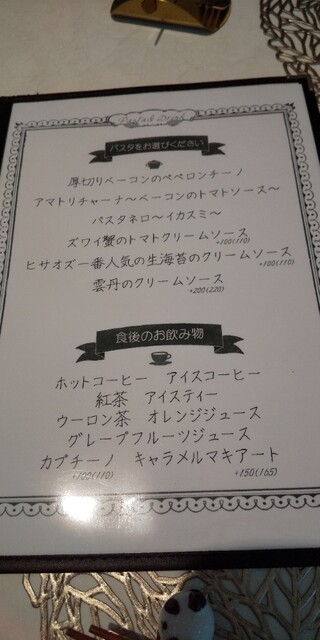 Pasta & Drink
パスタをお選びください
厚切りベーコンのペペロンチーノ
アマトリチャーナ〜ベーコンのトマトソース〜
パスタネロ〜イカスミ〜
ズワイ蟹のトマトクリームソース
+100(110)
ヒサオズ一番人気の生海苔のクリームソース
+100(110)
雲丹のクリームソース
+200(220)
食後のお飲み物
ホットコーヒー アイスコーヒー
紅茶 アイスティー
ウーロン茶 オレンジジュース
グレープフルーツジュース
カプチーノ キャラメルマキアート
+100(110) +150(165)